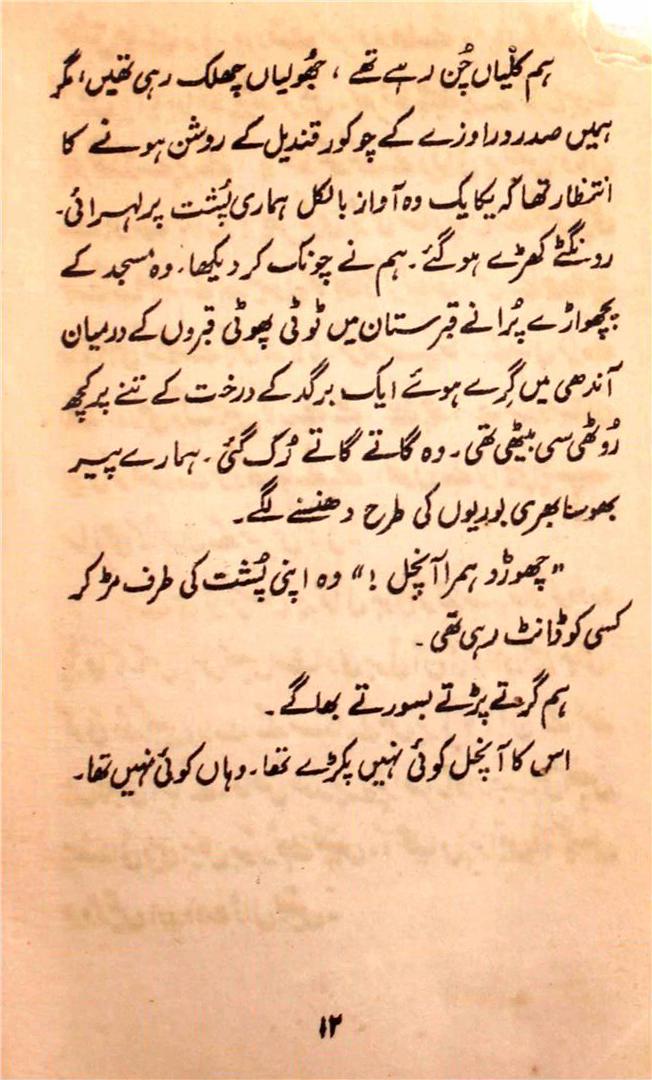 ہم کلیاں چُن رہے تھے ، جھولیاں چھلک رہی تھیں، مگر
ہمیں صدر دروازے کے چوکور قندیل کے روشن ہونے کا
انتظار تھا کہ یکایک وہ آواز بالکل ہماری پُشت پر لہرائی۔
رونگٹے کھڑے ہو گئے۔ ہم نے چونک کر دیکھا۔ وہ مسجد کے
پچھواڑے پُرانے قبرستان میں ٹوٹی پھوٹی قبروں کے درمیان
آندھی میں گِرے ہوئے ایک برگد کے درخت کے تنے پر کچھ
رُوٹھی سی بیٹھی تھی۔ وہ گاتے گاتے رُک گئی۔ ہمارے پیر
بھوسا بھری بوریوں کی طرح دھنسنے لگے۔
”چھوڑو ہمرا آنچل !“ وہ اپنی پُشت کی طرف مڑ کر
کسی کو ڈانٹ رہی تھی۔
ہم گرتے پڑتے بسورتے بھاگے۔
اس کا آنچل کوئی نہیں پکڑے تھا۔ وہاں کوئی نہیں تھا۔
۱۲